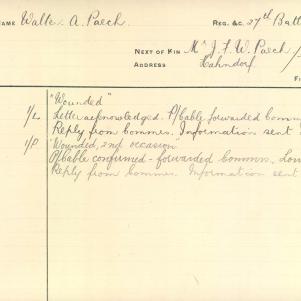 NAME Walter A. Paech. REG. &C. 27th Batt
NEXT OF KIN Mr J. F. W. Paech,
ADDRESS Hahndorf
"Wounded"
1/L Letter acknowledged. P/Cable forwarded Comm
Reply from Commrs. Information sent
1/P Wounded, 2nd occasion
P/Cable confirmed - forwarded Commrs.
Reply from Commrs. Information sent